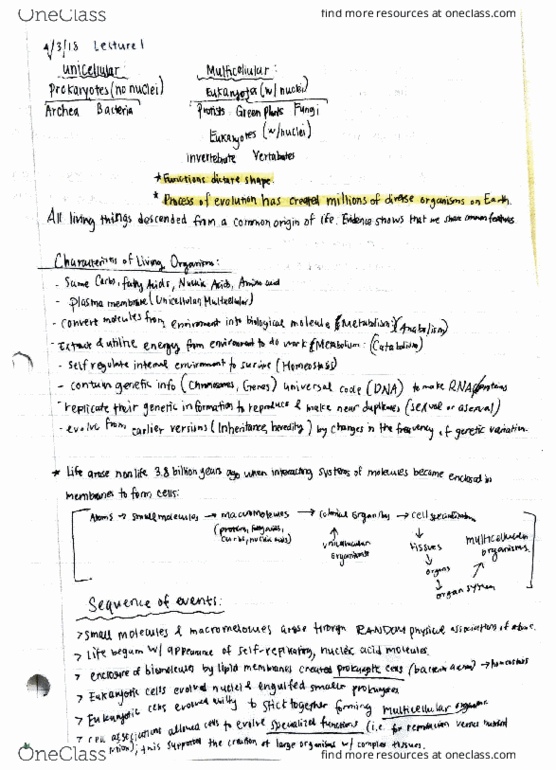 OneClass
find more resources at oneclass.com
4/3/18 Lecture 1
unicellular: Multicellular:
Prokaryotes (no nuclei) Eukaryotes (w/nuclei)
Archea Bacteria Protists Green plants Fungi
Eukaryotes (w/nuclei)
invertebrate Vertabates
* Functions dictate shape.
* Process of evolution has created millions of diverse organisms on Earth.
All living things descended from a common origin of life. Evidence shows that we share common features
Characteristics of Living Organisms:
- Same Carbo, fatty Acids, Nucleic Acids, Amino acid
- plasma membrane (Unicellular, Multicellular)
- convert molecules from enviroment into biological molecule (Metabolism) (Anabolism)
- Extract & utilize energy from enviroment to do work (Metabolism: (Catabolism)
- Self regulate internal enviroment to survive (Homeostasis)
- contain genetic info (Chromosomes, Genes) universal code (DNA) to make RNA/proteins
- replicate their genetic information to reproduce & make near duplicates (sexual or asexual)
- evolve from earlier versions (Inheritance, heredity) by changes in the frequency of genetic variation.
* Life arose nonlife 3.8 billion years ago when interacting systems of molecules became enclosed in
membranes to form cells:
Atoms → small molecules → macromolecules → colonial organisms → cell specialization
(proteins, fatty acids, carbs, nucleic acids)
unicellular organisms
tissues
organs
organ system
multicellular organisms
Sequence of events:
> Small molecules & macromolecules arose through RANDOM physical associations of atoms.
> Life begun w/ appearance of self-replicating, nucleic acid molecules.
> enclosure of biomolecules by lipid membranes created prokaryotic cells (bacteria archea) → homeostasis
> Eukaryotic cells evolved nuclei & engulfed smaller prokaryotes
> Eukaryotic cells evolved ability to stick together forming multicellular organisms
> Cell associations allowed cells to evolve specialized functions (i.e. for reproduction versus
this supported the creation of large organisms w/ complex tissues.
OneClass
find more resources at oneclass.com